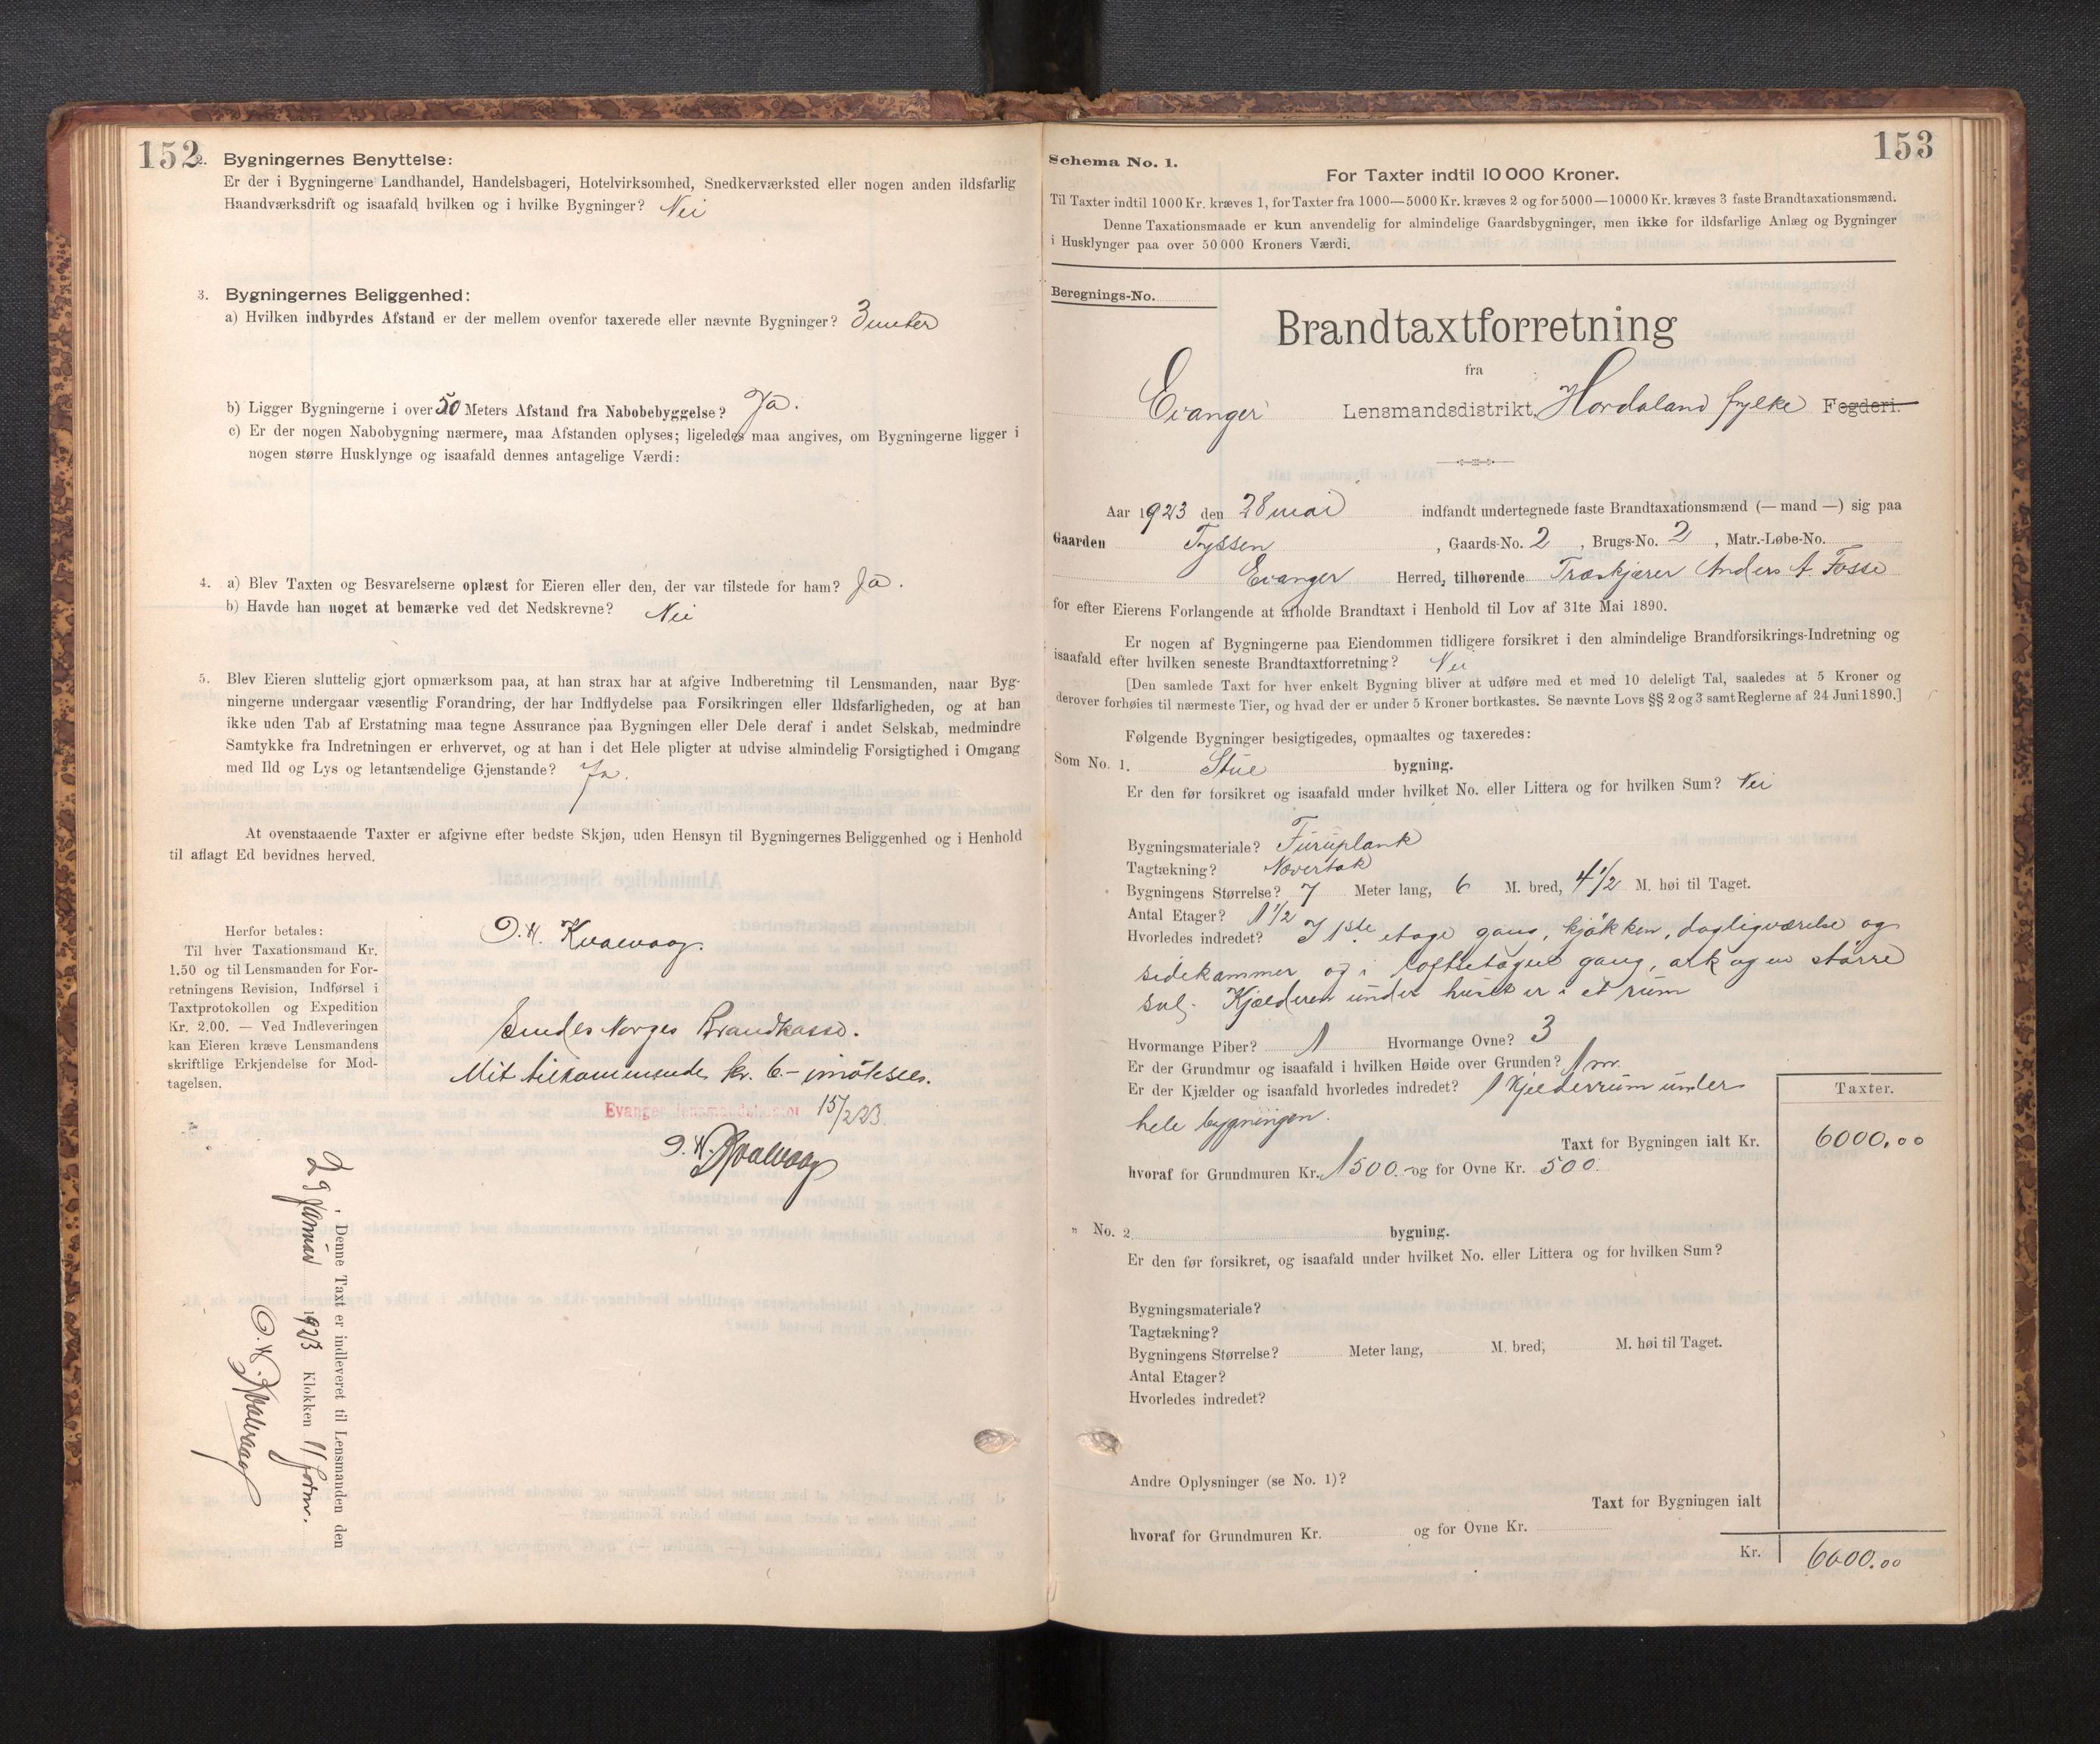 152
2. Bygningernes Benyttelse:
Er der i Bygningerne Landhandel, Handelsbageri, Hotelvirksomhed, Snedkerværksted eller nogen anden ildsfarlig
Haandværksdrift og isaafald hvilken og i hvilke Bygninger? Nei
3. Bygningernes Beliggenhed:
a) Hvilken indbyrdes Afstand er der mellem ovenfor taxerede eller nævnte Bygninger? 3 meter
b) Ligger Bygningerne i over 50 Meters Afstand fra Nabobebyggelse? Ja.
c) Er der nogen Nabobygning nærmere, maa Afstanden oplyses; ligeledes maa angives, om Bygningerne ligger i
nogen større Husklynge og isaafald dennes antagelige Værdi:
4. a) Blev Taxten og Besvarelserne oplæst for Eieren eller den, der var tilstede for ham? Ja.
b) Havde han noget at bemærke ved det Nedskrevne? Nei
5. Blev Eieren sluttelig gjort opmærksom paa, at han strax har at afgive Indberetning til Lensmanden, naar Byg-
ningerne undergaar væsentlig Forandring, der har Indflydelse paa Forsikringen eller Ildsfarligheden, og at han
ikke uden Tab af Erstatning maa tegne Assurance paa Bygningen eller Dele deraf i andet Selskab, medmindre
Samtykke fra Indretningen er erhvervet, og at han i det Hele pligter at udvise almindelig Forsigtighed i Omgang
med Ild og Lys og letantændelige Gjenstande? Ja.
At ovenstaaende Taxter er afgivne efter bedste Skjøn, uden Hensyn til Bygningernes Beliggenhed og i Henhold
til aflagt Ed bevidnes herved.
Herfor betales:
Til hver Taxationsmand Kr.
1.50 og til Lensmanden for For-
retningens Revision, Indførsel i
Taxtprotokollen og Expedition
Kr. 2.00. — Ved Indleveringen
kan Eieren kræve Lensmandens
skriftlige Erkjendelse for Mod-
tagelsen.
O. N. Kvalvaag.
Sendes Norges Brandkasse.
Mit tilkommende kr. 6.- imøtesees.
Evanger lensmandskontor 15/2 23.
O. N. Kvalvaag
Denne Taxt er indleveret til Lensmanden den
29 januar 1923 Klokken 11 form.
O. N. Kvalvaag
153
Schema No. 1.
For Taxter indtil 10 000 Kroner.
Til Taxter indtil 1000 Kr. kræves 1, for Taxter fra 1000—5000 Kr. kræves 2 og for 5000—10000 Kr. kræves 3 faste Brandtaxationsmænd.
Denne Taxationsmaade er kun anvendelig for almindelige Gaardsbygninger, men ikke for ildsfarlige Anlæg og Bygninger
i Husklynger paa over 50 000 Kroners Værdi.
Beregnings-No.
Brandtaxtforretning
fra
Evanger Lensmandsdistrikt, Hordaland fylke Fogderi.
Aar 1923 den 28 mai indfandt undertegnede faste Brandtaxationsmænd (— mand —) sig paa
Gaarden Tyssen, Gaards-No. 2, Brugs-No. 2, Matr.-Løbe-No.
Evanger Herred, tilhørende Træskjærer Anders A. Fosse
for efter Eierens Forlangende at afholde Brandtaxt i Henhold til Lov af 31te Mai 1890.
Er nogen af Bygningerne paa Eiendommen tidligere forsikret i den almindelige Brandforsikrings-Indretning og
isaafald efter hvilken seneste Brandtaxtforretning? Nei
[Den samlede Taxt for hver enkelt Bygning bliver at udføre med et med 10 deleligt Tal, saaledes at 5 Kroner og
derover forhøies til nærmeste Tier, og hvad der er under 5 Kroner bortkastes. Se nævnte Lovs §§ 2 og 3 samt Reglerne af 24 Juni 1890.]
Følgende Bygninger besigtigedes, opmaaltes og taxeredes:
Som No. 1. Stue bygning.
Er den før forsikret og isaafald under hvilket No. eller Littera og for hvilken Sum? Nei
Bygningsmateriale? Furuplank
Tagtækning? Nævertak
Bygningens Størrelse? 7 Meter lang, 6 M. bred, 4 1/2 M. høi til Taget.
Antal Etager? 1 1/2
Hvorledes indredet? I 1ste etage gang, kjøkken, dagligværelse og
sidekammer og i loftsetagen gang, ark og en større
sal. Kjælderen under huset er i et rum
Hvormange Piber? 1 Hvormange Ovne? 3
Er der Grundmur og isaafald i hvilken Høide over Grunden? 1 m.
Er der Kjælder og isaafald hvorledes indredet? 1 kjelderrum under
hele bygningen.
Taxter.
Taxt for Bygningen ialt Kr. 6000,00
hvoraf for Grundmuren Kr. 1500.- og for Ovne Kr. 500.
" No. 2 bygning.
Er den før forsikret, og isaafald under hvilket No. eller Littera og for hvilken Sum?
Bygningsmateriale?
Tagtækning?
Bygningens Størrelse? Meter lang, M. bred, M. høi til Taget.
Antal Etager?
Hvorledes indredet?
Andre Oplysninger (se No. 1)?
Taxt for Bygningen ialt
hvoraf for Grundmuren Kr. og for Ovne Kr.
Kr. 6000.00